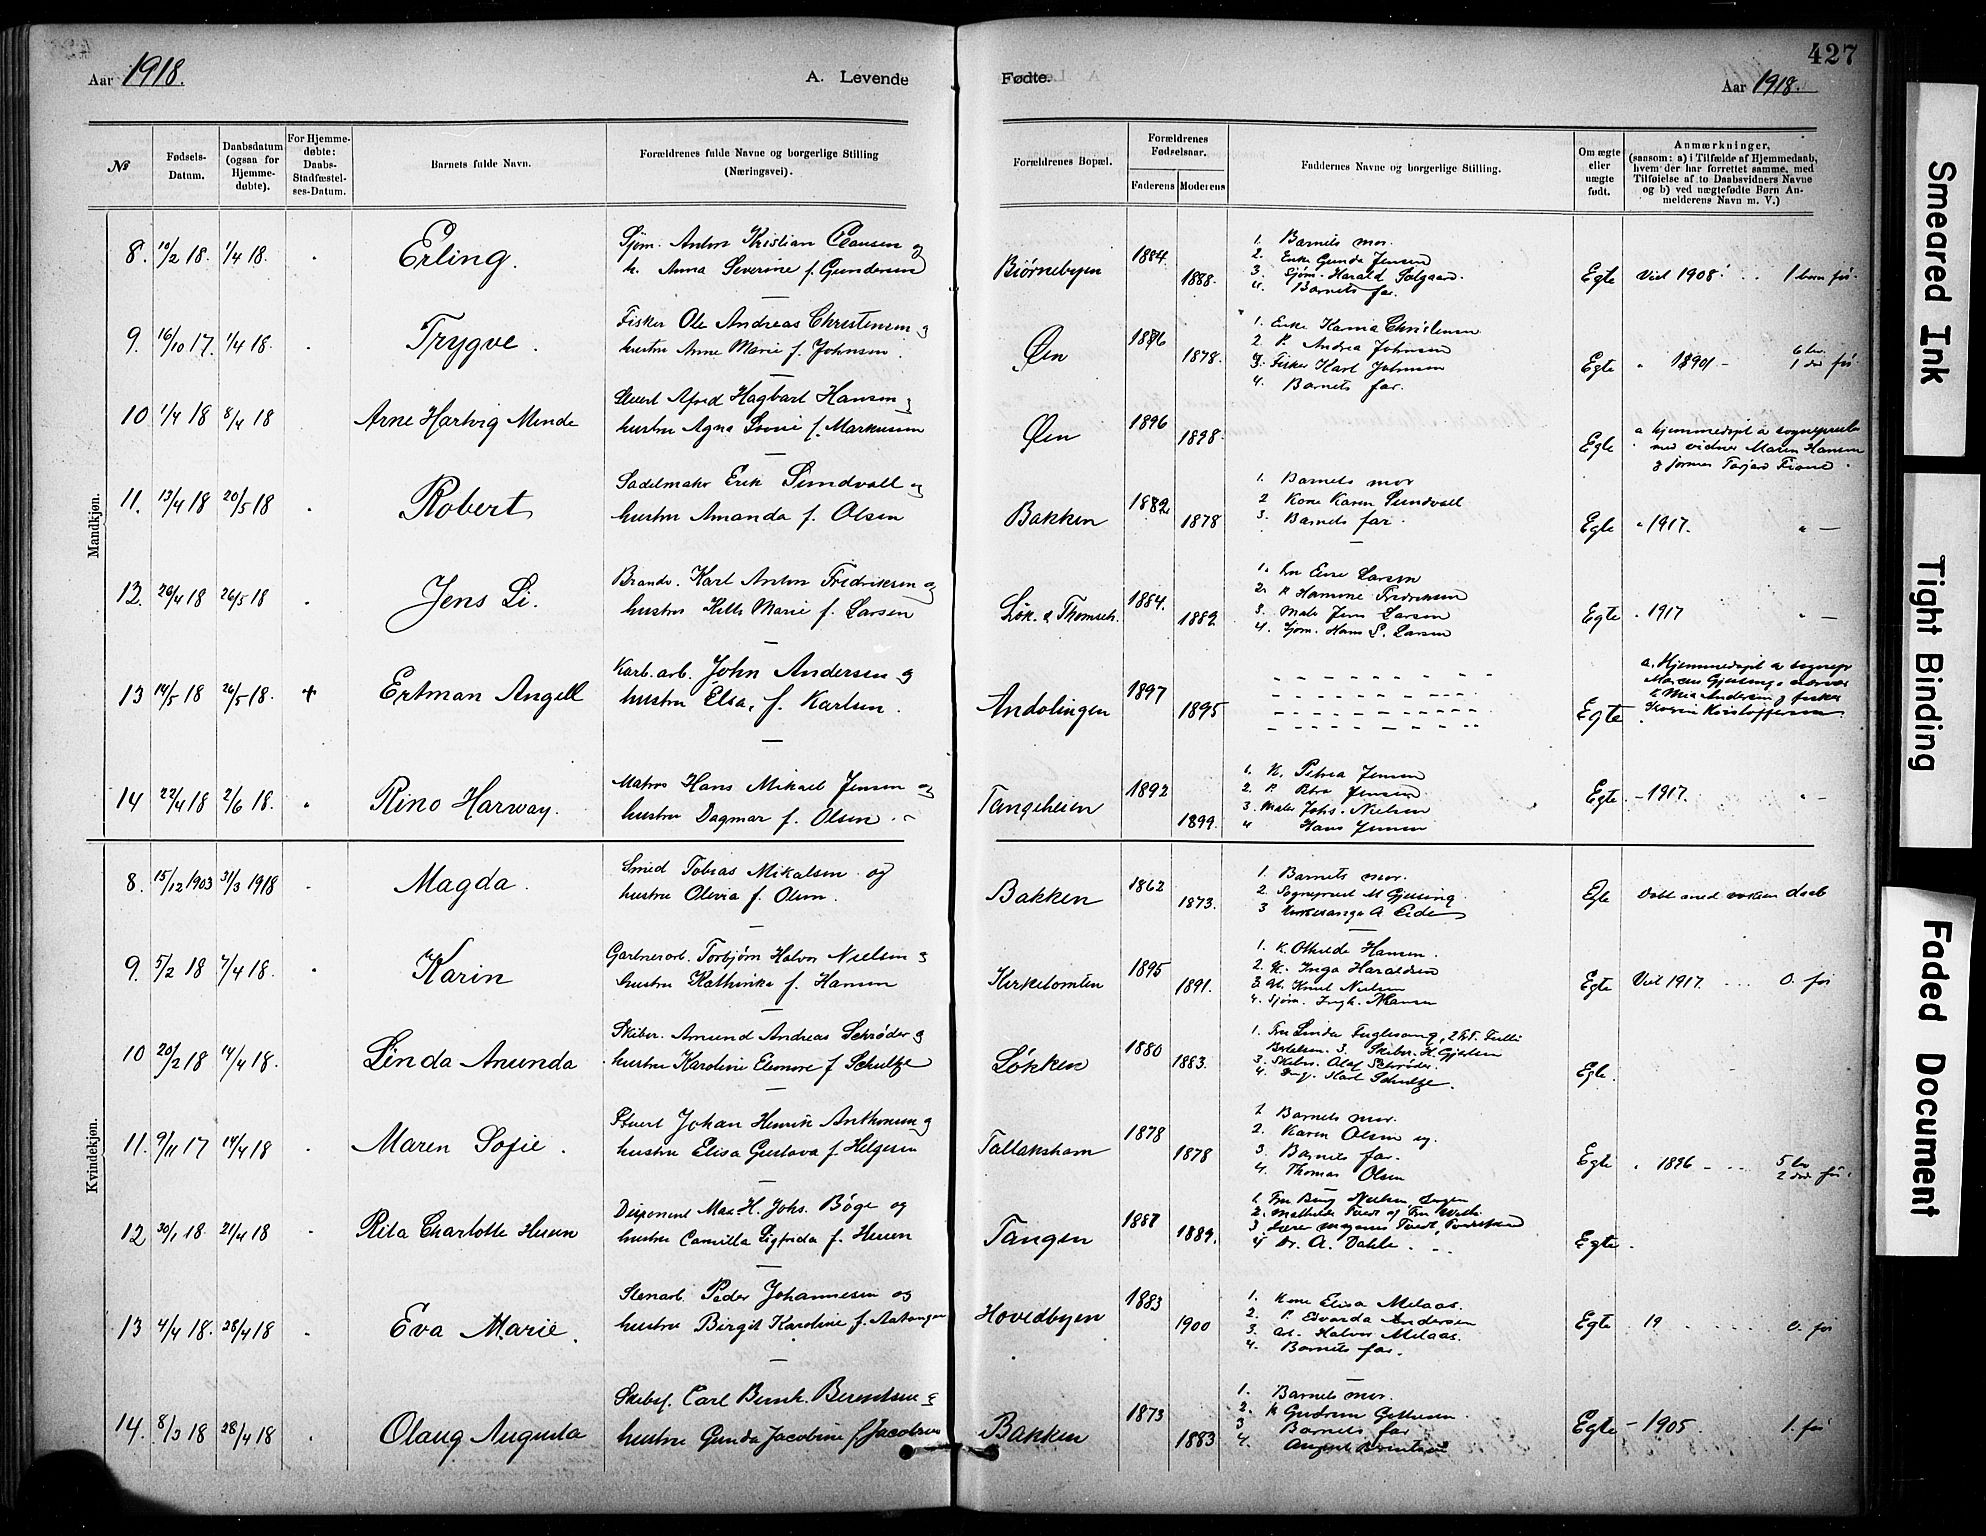 427
Aar 1918.
A. Levende
Fødte.
Aar 1918.
№
Fødsels-Datum.
Daabsdatum (ogsaa for Hjemmedøbte).
For Hjemmedøbte: Daabs-Stadfæstelses-Datum.
Barnets fulde Navn.
Forældrenes fulde Navne og borgerlige Stilling (Næringsvei).
Forældrenes Bopæl.
Forældrenes Fødselsaar.
Faderens
Moderens
Faddernes Navne og borgerlige Stilling.
Om ægte eller uægte født.
Anmærkninger,
(saasom: a) i Tilfælde af Hjemmedaab,
hvem der har forrettet samme, med
Tilføielse af to Daabsvidners Navne
og b) ved uægtefødte Børn Anmelderens Navn m. V.)
Mandkjøn.
8. 10/2 18. 1/4 18. Erling.
Sjøm. Anton Kristian Clausen og
h. Anna Severine f. Gundersen
Bjørnebyen 1884. 1888.
1. Barnets mor.
2. Enke Gunda Jensen
3. Sjøm. Harald Solgaard.
4. Barnets far.
Egte Viet 1908 1 barn før
9. 16/10 17. 1/4 18. Trygve.
Fisker Ole Andreas Christensen og
hustru Anne Marie f. Johnsen.
Øen 1876 1878.
1. Enke Karna Christensen
2. P. Andrea Johnsen
3. Fisker Karl Johnsen
4. Barnets far.
Egte " 1901 -
10 1/4 18 8/4 18 Arne Hartvig Minde
Stuert Alfred Hagbart Hansen og
hustru Agna f. Markussen
Øen 1896 1898.
Egte a hjemmedøpt av sogneprest
med vidner Maren Hansen
11. 13/4 18 20/5 18 Robert
Sadelmaker Erik Sundvall og
hustru Amanda f. Olsen
Bakken 1882 1878
1. Barnets mor
2 Kone Karen Sundvall
3. Barnets far.
Egte " 1917. " —
12. 26/4 18 26/5 18 Jens Li.
Brandv. Karl Anton Fredriksen og
hustru Marie f. Larsen
Løk. v. Thomseh. 1884. 1889.
Larsen
Fredriksen
3. Maler Jens Larsen
4. Sjøm. Hans S. Larsen
Egte " 1917 " —
13 14/5 18 26/5 18. + Ertman Angell
Karb. arb. John Andersen og
hustru Elsa, f. Karlsen.
Andølingen 1897 1895
Egte a. Hjemmedøpt av sognepr
Marcus Gjessing,
Mia Andersen og fisker
Kristoffersen
14 22/4 18 2/6 18. Rino Harway.
Matros Hans Mikael Jensen og
hustru Dagmar f. Olsen.
Tangeheien 1892 1899.
1. K. Petrea Jensen
2. P. Petra Jensen
3. Maler Johs. Nielsen
4 Hans Jensen
Egte. - 1917. " -
Kvindekjøn.
8. 15/12 1903 31/3 1918 Magda.
Smed Tobias Mikalsen og
hustru Olevia f. Olsen.
Bakken 1862 1873.
1. Barnets mor.
2. Sogneprest M Gjessing.
3 Kirkesanger A Eide
Egte Døbt med voksen daab
9. 5/2 18 7/4 18. Karin
Gartnerarb. Torbjørn Halvor Nielsen og
hustru Kathinka f. Hansen
Kirketomten 1895 1891.
1. K. Othilde Hansen.
2. K. Inga Haraldsen
3. Knut Nielsen
4. Sjøm. Ingh. Hansen
Egte Viet 1917. 0. før
10 20/2 18 14/4 18. Linda Anunda
Skibsr. Amund Andreas Schrøder og
hustru Karoline Elenore f Schultze
Løkken 1880 1883.
1. Fru Linda Fuglesang,
Bertelsen. 3. Skibsr. H. Gjertsen
3. Skibsr. Olaf Schrøder.
4. Ing. Karl Schultze.
Egte.
11. 9/11 17 14/4 18 Maren Sofie.
Stuert Johan Henrik Anthonsen og
hustru Elisa Gustava f Helgesen
Tallakshavn 1878 1878
1. Barnets mor.
2. Karen Olsen
3. Barnets far.
4. Thomas Olsen
Egte " 1896 -
12 30/1 18. 21/4 18 Rita Charlotte
Disponent Max H. Johs. Böge og
hustru Camilla Sigfrida f.
Tangen 1887 1889.
1. Fru Nielsen
2. Mathilde Tvedt og Fru
3. Lærer Magnus Tvedt,
4 Dr. A. Dahle.
Egte.
13 4/4 18. 28/4 18 Eva Marie.
Stenarb. Peder Johannesen og
hustru Birgit Karoline f. Aatangen
Hovedbyen 1883 1900
1. Kone Elisa Melaas.
2. P. Edvarda Andersen
3. Halvor Melaas.
4. Barnets far.
Egte - 19 0. før
14. 8/3 18 28/4 18 Olaug Augusta
Skibsf. Carl Berentsen og
hustru Gunda Jacobine f Jacobsen
Bakken 1873 1883
1. Barnets mor.
2. K Gudrun
3 Barnets far
4. Berentsen
Egte - 1905 1. før
Smeared Ink
Tight Binding
Faded Document